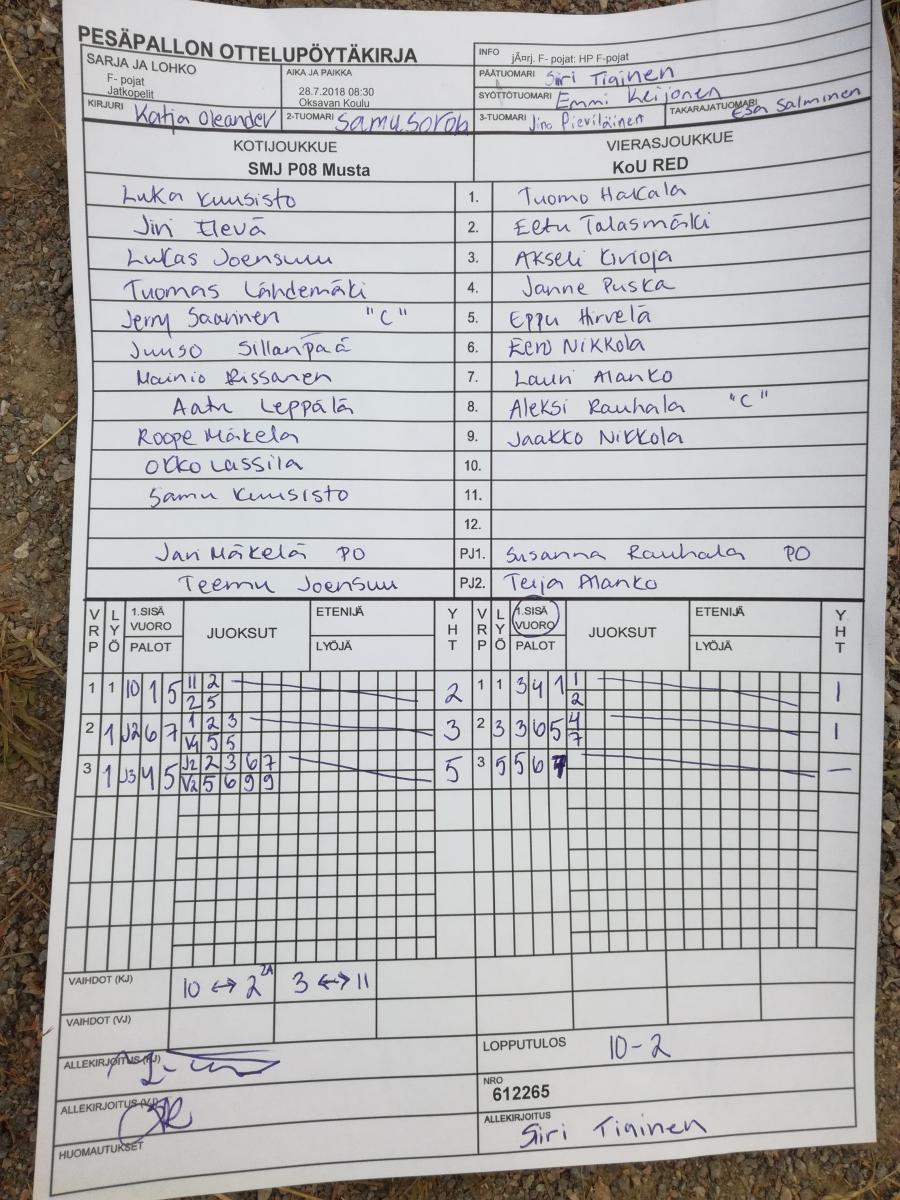 PESÄPALLON OTTELUPÖYTÄKIRJA
SARJA JA LOHKO
F- pojat
Jatkopelit
AIKA JA PAIKKA
28.7.2018 08:30
Oksavan Koulu
INFO jÃ¤rj. F- pojat: HP F-pojat
PÄÄTUOMARI Siiri Tiainen
SYÖTTÖTUOMARI Emmi Keijonen
KIRJURI Katja Oleander
2-TUOMARI Samu
3-TUOMARI Jino Pieviläinen
TAKARAJATUOMARI Esa Salminen
KOTIJOUKKUE VIERASJOUKKUE
SMJ P08 Musta KoU RED
Luka Kuusisto 1. Tuomo Hakala
Jiri Elevä 2. Eetu Talasmäki
Lukas Joensuu 3. Akseli Kivioja
Tuomas Lähdemäki 4. Janne Puska
Jerry Saarinen "C" 5. Eppu Hirvelä
Juuso Sillanpää 6. Eero Nikkola
Mainio Rissanen 7. Lauri Alanko
Aatu Leppälä 8. Aleksi Rauhala "C"
Roope Mäkelä 9. Jaakko Nikkola
Okko Lassila 10.
Samu Kuusisto 11.
12.
Jari Mäkelä PO PJ1. Susanna Rauhala PO
Teemu Joensuu PJ2. Teija Alanko
VRP LYÖ 1.SISÄ VUORO PALOT JUOKSUT ETENIJÄ LYÖJÄ YHT VRP LYÖ 1.SISÄ VUORO PALOT JUOKSUT ETENIJÄ LYÖJÄ YHT
1 1 10 1 5 11 2 2 1 1 3 4 1 1 1
2 5 2
2 1 J2 6 7 1 2 3 3 2 3 3 6 5 4 1
V1 5 5 7
3 1 J3 4 5 J2 2 3 6 7 5 3 5 5 6 7 —
V2 5 6 9 9
VAIHDOT (KJ) 10 ↔ 2 2A 3 ↔ 11
VAIHDOT (VJ)
ALLEKIRJOITUS (KJ)
LOPPUTULOS 10-2
ALLEKIRJOITUS (VJ)
NRO
612265
HUOMAUTUKSET
ALLEKIRJOITUS
Siiri Tiainen